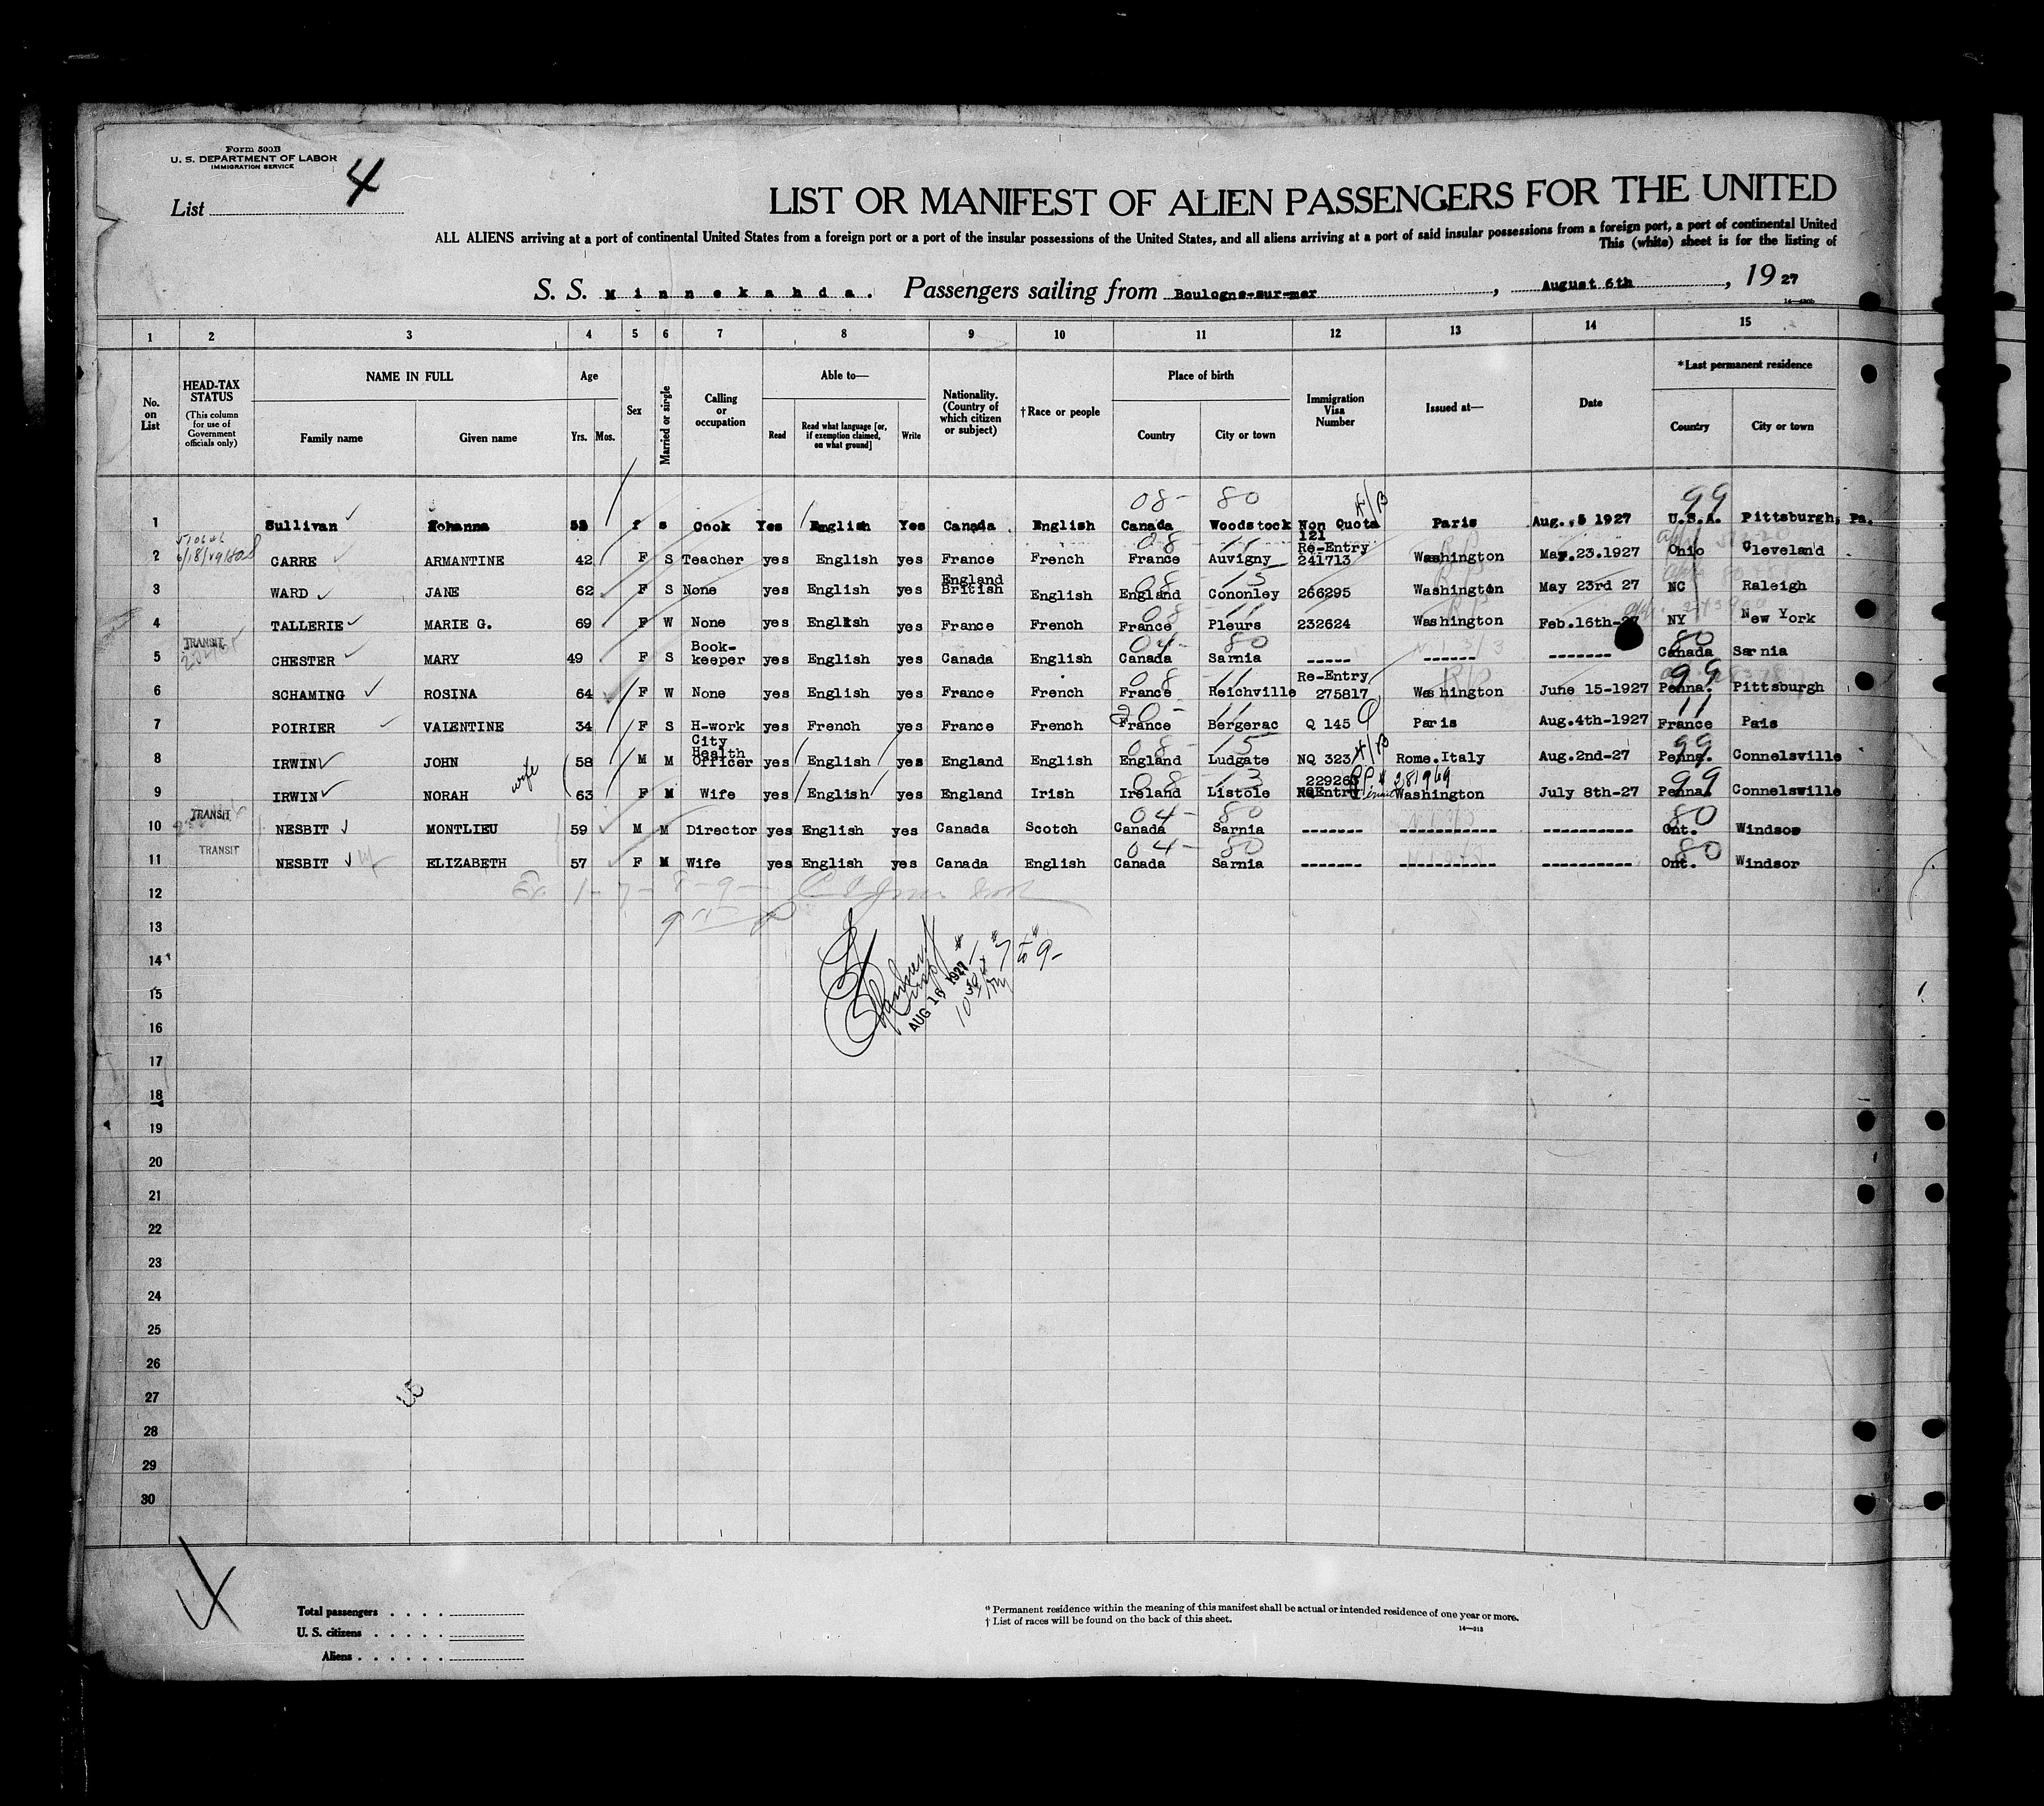 Form 500B
U. S. DEPARTMENT OF LABOR
IMMIGRATION SERVICE
List 4
LIST OR MANIFEST OF ALIEN PASSENGERS FOR THE UNITED
ALL ALIENS arriving at a port of continental United States from a foreign port or a port of the insular possessions of the United States, and all aliens arriving at a port of said insular possessions from a foreign port, a port of continental United
This (white) sheet is for the listing of
S. S. Minnekahda. Passengers sailing from Boulogne-sur-mer, August 6th, 1927
1 2 3 4 5 6 7 8 9 10 11 12 13 14 15
No. on List
HEAD-TAX STATUS (This column for use of Government officials only)
NAME IN FULL Family name Given name
Age Yrs. Mos.
Sex
Married or single
Calling or occupation
Able to— Read Read what language [or, if exemption claimed, on what ground] Write
Nationality. (Country of which citizen or subject)
†Race or people
Place of birth Country City or town
Immigration Visa Number
Issued at—
Date
*Last permanent residence Country City or town
08- 80 4/B 99
1 Sullivan Johanna 53 f s Cook Yes English Yes Canada English Canada Woodstock Non Quota 121 Paris Aug.,5 1927 U.S.A. Pittsburgh, Pa.
08- 11
2 CARRE ARMANTINE 42 F S Teacher yes English yes France French France Auvigny Re-Entry 241713 Washington May.23.1927 Ohio Cleveland
08- 15
3 WARD JANE 62 F S None yes English yes England British English England Cononley 266295 Washington May 23rd 27 NC Raleigh
08- 11
4 TALLERIE MARIE G. 69 F W None yes English yes France French France Pleurs 232624 Washington Feb.16th-27 NY New York
TRANSIT 04- 80 80
5 CHESTER MARY 49 F S Book-keeper yes English yes Canada English Canada Sarnia ----- ------ ------- Canada Sarnia
08- 11 99
6 SCHAMING ROSINA 64 F W None yes English yes France French France Reichville Re-Entry 275817 Washington June 15-1927 Penna. Pittsburgh
20- 11 11
7 POIRIER VALENTINE 34 F S H-work yes French yes France French France Bergerac Q 145 Paris Aug.4th-1927 France Pais
08- 15 4/B 99
8 IRWIN JOHN 58 M M City Health Officer yes English yes England English England Ludgate NQ 323 Rome.Italy Aug.2nd-27 Penna. Connelsville
wife 08- 13 99
9 IRWIN NORAH 63 F M Wife yes English yes England Irish Ireland Listole 229263 Washington July 8th-27 Penna. Connelsville
TRANSIT 04- 80 80
10 NESBIT MONTLIEU 59 M M Director yes English yes Canada Scotch Canada Sarnia ------- ----------- ---------- Ont. Windsor
TRANSIT 04- 80 80
11 NESBIT ELIZABETH 57 F M Wife yes English yes Canada English Canada Sarnia ------- ----------- ---------- Ont. Windsor
12
13
14
AUG 16 1927
15
16
17
18
19
20
21
22
23
24
25
26
27
28
29
30
Total passengers
U. S. citizens
Aliens
* Permanent residence within the meaning of this manifest shall be actual or intended residence of one year or more.
† List of races will be found on the back of this sheet.
14—313